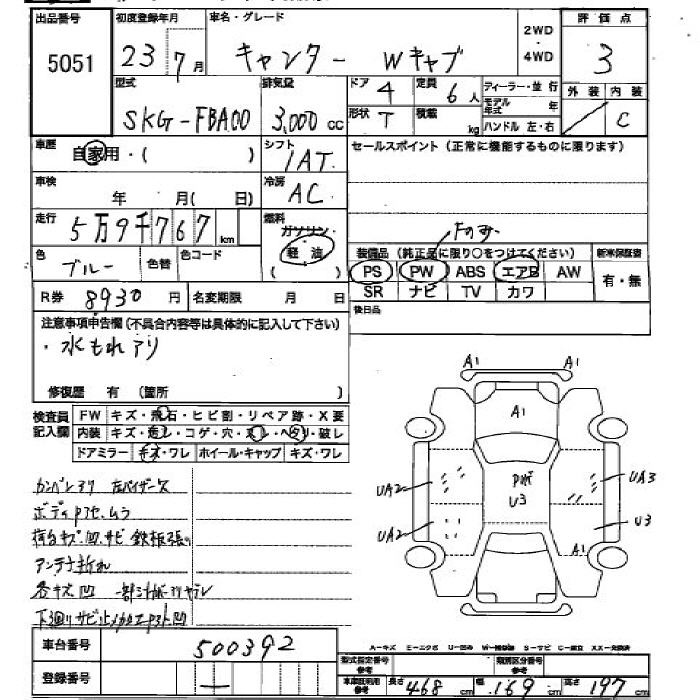 出品番号 5051
初度登録年月 23 7月
車名・グレード キャンター Wキャブ
2WD・4WD
評価点 3
外装 内装 C
型式 SKG-FBA00
排気量 3,000 cc
ドア 4
定員 6人
形状 T
積載 kg
ディーラー・並行
モデル年式 年
ハンドル 左・右
車歴 自家用・( )
シフト IAT
セールスポイント (正常に機能するものに限ります)
車検 年 月( 日)
冷房 AC
走行 5万9千767km
燃料 ガソリン・軽油 ( )
Fのみ
装備品 (純正品に限り○をつけてください) 新車保証書
PS PW ABS エアB AW 有・無
SR ナビ TV カワ
色 ブルー 色替 色コード
後日品
R券 8930円 名変期限 月 日
注意事項申告欄 (不具合内容等は具体的に記入して下さい)
・水もれアリ
修復歴 有 (箇所 )
検査員記入欄
FW キズ・飛石・ヒビ割・リペア跡・X要
内装 キズ・汚レ・コゲ・穴・スレ・ヘタリ・破レ
ドアミラー キズ・ワレ ホイール・キャップ キズ・ワレ
A1 A1
A1
UA2 UA3
U3
UA2 U3
A1
アンテナ折れ
各キズ凹
車台番号 500392
登録番号
A-キズ U-凹み S-サビ
型式指定番号 参考 類別区分番号 参考
長さ 468 cm 幅 169 cm 高さ 197 cm